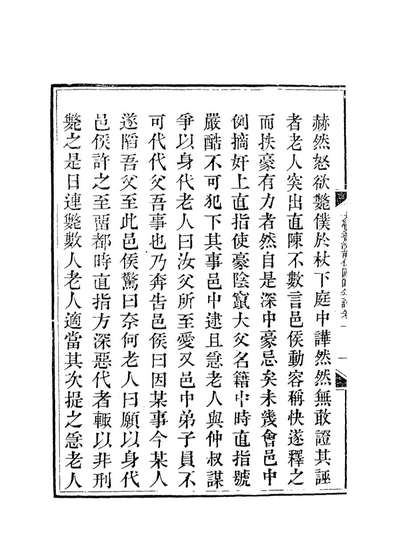 赫然怒欲斃僕於杖下庭中譁然然無敢證其誣
者老人突出直陳不數言邑侯動容稱快遂釋之
而扶豪有力者然自是深中豪忌矣未幾會邑中
例摘奸上直指使豪陰竄大父名籍中時直指號
嚴酷不可犯下其事邑中逮且急老人與仲叔謀
爭以身代老人曰汝父所至愛又邑中弟子員不
可代代父吾事也乃奔告邑侯曰因某事今某人
遂䧟吾父至此邑侯驚曰奈何老人曰願以身代
邑侯許之至畱都時直指方深惡代者輒以非刑
斃之是日連斃數人老人適當其次提之急老人